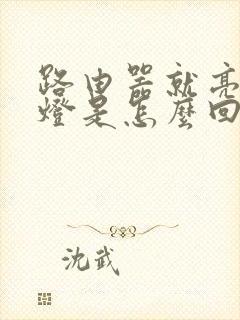 路由器就亮
燈是怎麼回
沈武